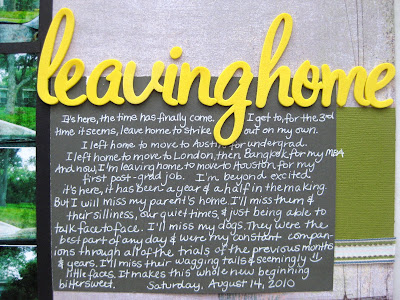 leaving home
It's here, the time has finally come. I get to, for the 3rd
time it seems, leave home to strike out on my own.
I left home to move to Austin for undergrad.
I left home to move to London, then Bangkok for my MBA
And now, I'm leaving home to move to Houston for my
first post-grad job. I'm beyond excited
it's here, it has been a year & a half in the making.
But I will miss my parent's home. I'll miss them &
their silliness, our quiet times, & just being able to
talk face to face. I'll miss my dogs. They were the
best part of any day & were my constant compan-
ions through all of the trials of the previous months
& years. I'll miss their wagging tails & seemingly
little faces. It makes this whole new beginning
bittersweet. Saturday, August 14, 2010